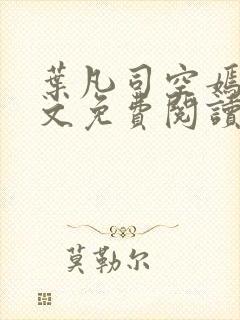 葉凡司空嫣
文免費閱讀
莫勒尔